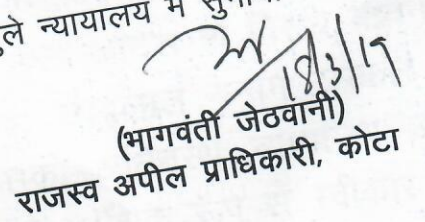 ले न्यायालय में
18/3/19
(भागवंती जेठवानी)
राजस्व अपील प्राधिकारी, कोटा